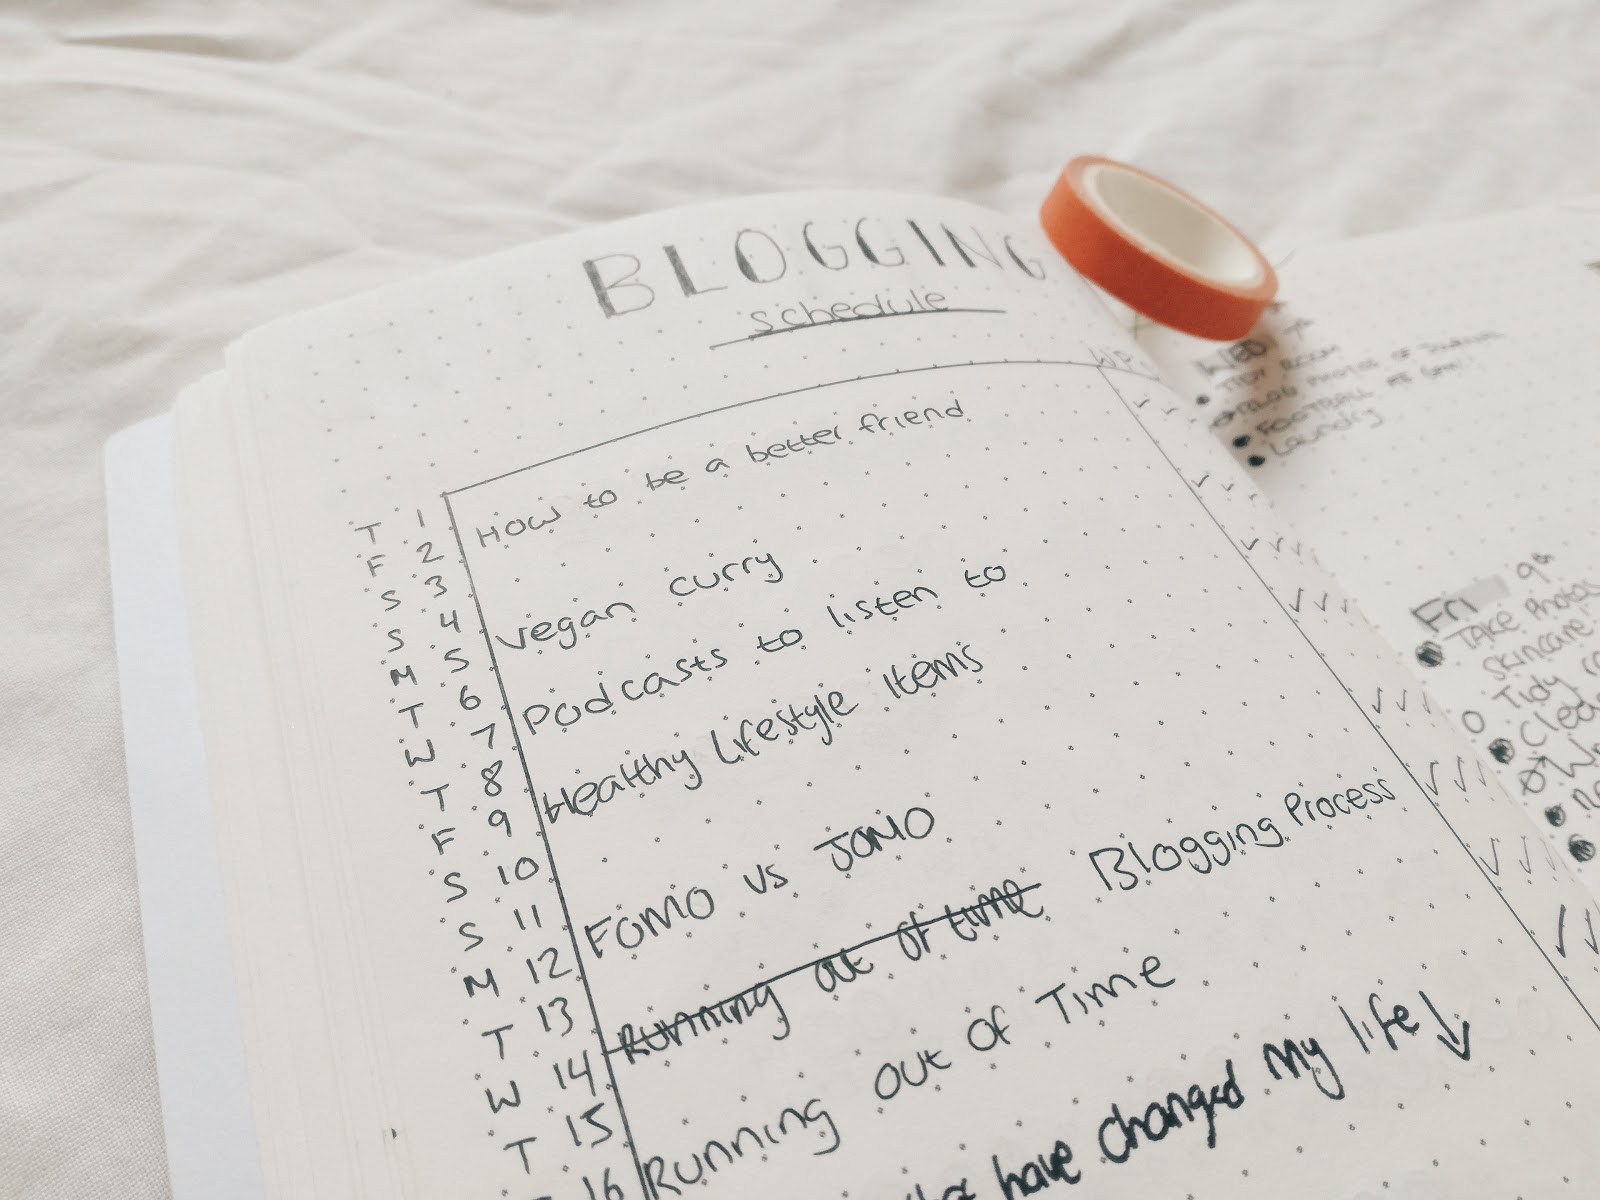 BLOGGING
schedule
T 1 How to be a better friend
F 2
S 3
S 4 vegan curry
M 5
T 6 Podcasts to listen to
W 7
T 8 Healthy Lifestyle Items
F 9
S 10
S 11
M 12 FOMO vs JOMO
T 13
W 14 Running out of time Blogging Process
T 15
16 Running out of Time
have changed my life ↓
WED 7th
TIDY ROOM
BLOG PHOTOS OF
FOOTBALL
Laundry
Fri 9th
TAKE Photos
skincare
Tidy